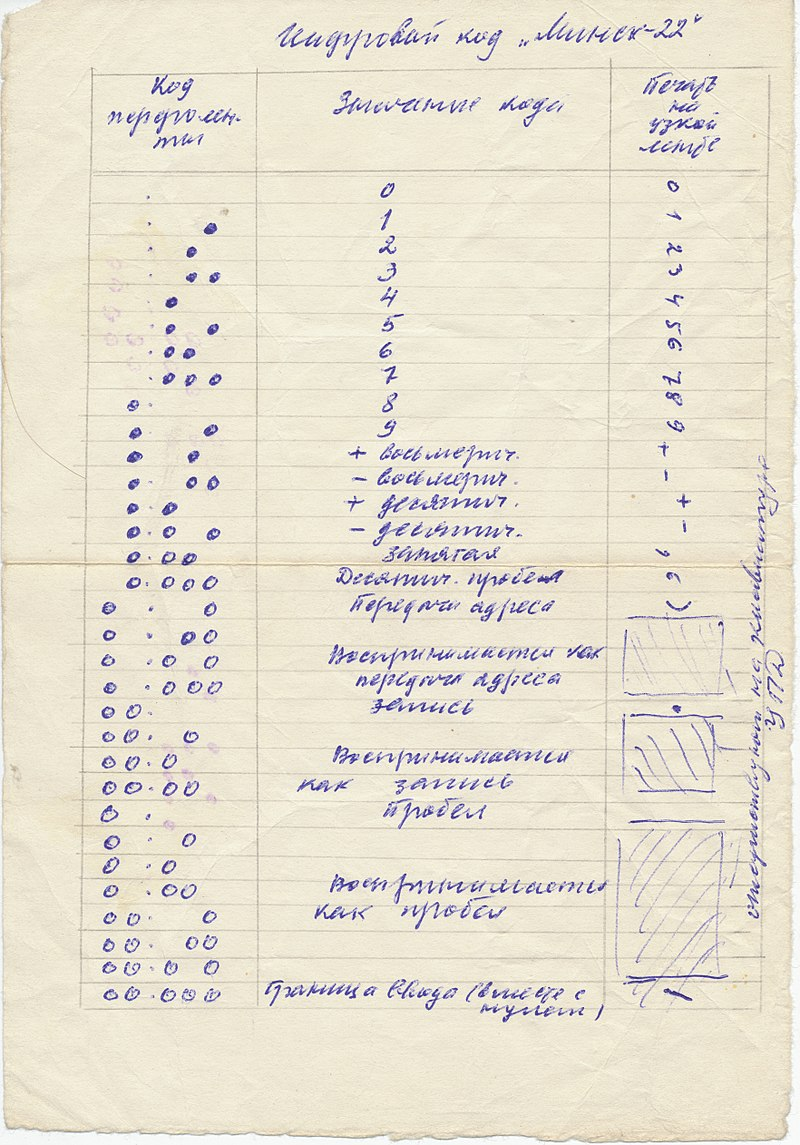 Цифровай код „Минск-22"
Код
перфолен-
ты
Значение кода
Печать
на
узкой
ленте
0 0
1 1
2 2
3 3
4 4
5 5
6 6
7 7
8 8
9 9
+ восьмерич. +
- восьмерич. -
+ десятич. +
- десятич. -
запятая ,
Десятич. пробел 6
Передача адреса )
Воспринимается как
передача адреса
запись
Воспринимается
как запись
Пробел
Воспринимается
как пробел
Граница ввода (вместе с
нулем)
отсутствуют на клавиатуре
УПД